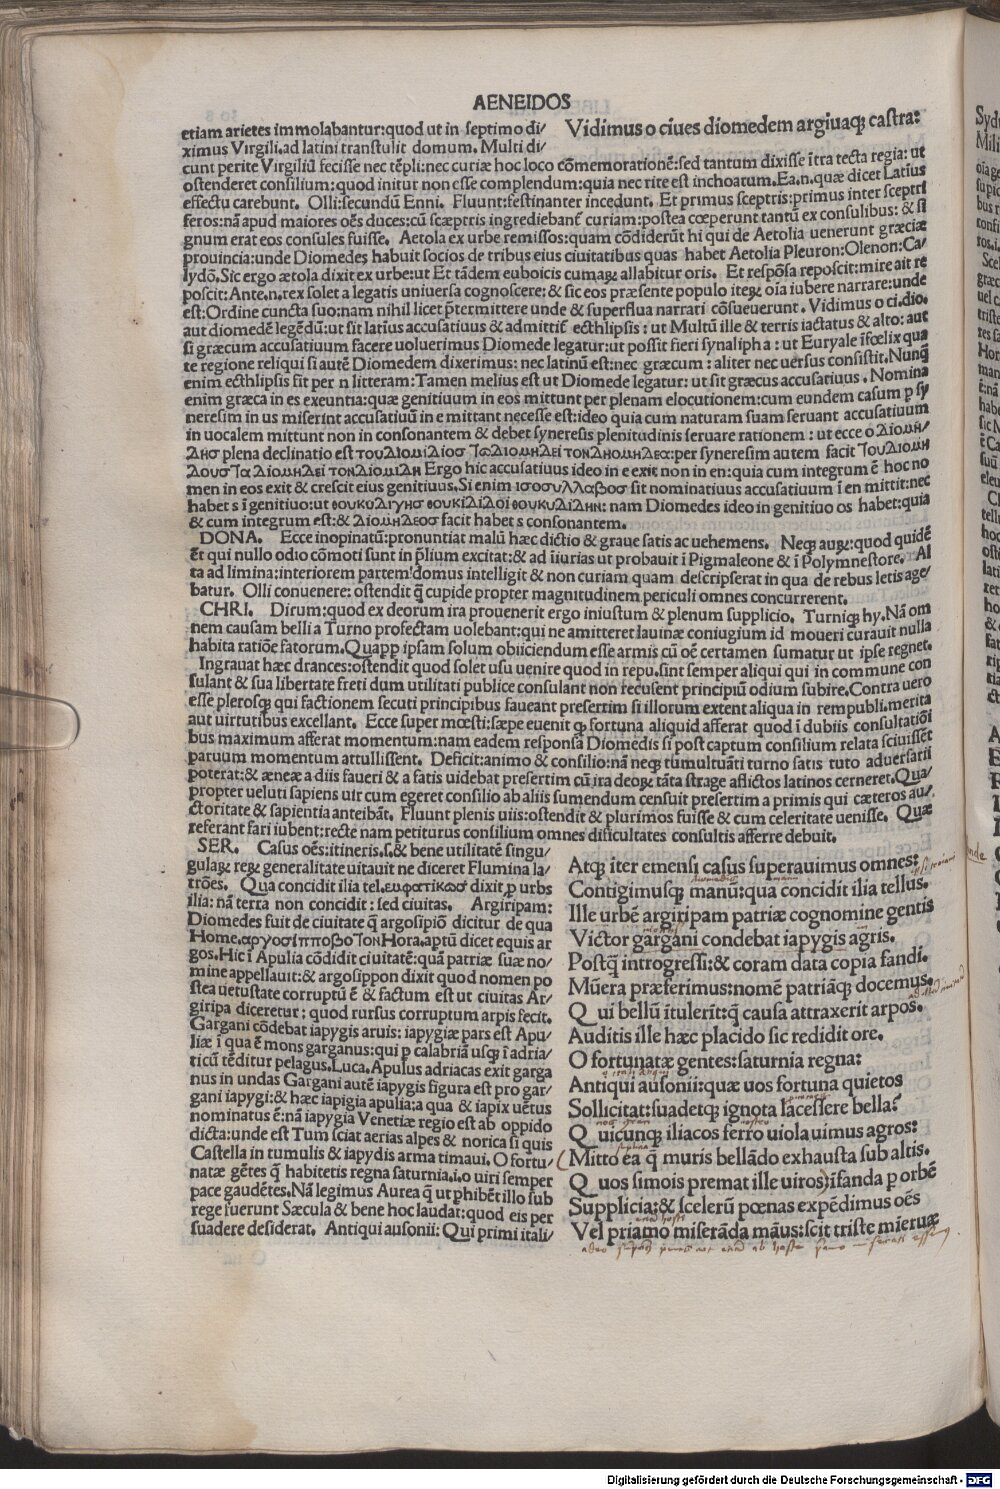 AENEIDOS
etiam arietes immolabantur:quod ut in septimo di/
ximus Virgili.ad latini transtulit domum. Multi di/
Vidimus o ciues diomedem argiuaqȝ castra:
cunt perite Virgiliū fecisse nec tēpli:nec curiæ hoc loco cōmemorationē:sed tantum dixisse ītra tecta regia: ut
ostenderet consilium:quod initur non esse complendum:quia nec rite est inchoatum.Ea.n.quæ dicet Latius
effectu carebunt. Olli:secundū Enni. Fluunt:festinanter incedunt. Et primus sceptris:primus inter sceptri
feros:nā apud maiores oēs duces:cū scæptris ingrediebanť curiam:postea cœperunt tantū ex consulibus: & si
gnum erat eos consules fuisse. Aetola ex urbe remissos:quam cōdiderūt hi qui de Aetolia uenerunt græciæ
prouincia:unde Diomedes habuit socios de tribus eius ciuitatibus quas habet Aetolia Pleuron:Olenon:Ca/
lydō.Sic ergo ætola dixit ex urbe:ut Et tādem euboicis cumaꝝ allabitur oris. Et respōsa reposcit:mire ait re
poscit:Ante.n.rex solet a legatis uniuersa cognoscere:& sic eos præsente populo iteꝝ oīa iubere narrare:unde
est:Ordine cuncta suo:nam nihil licet p̄termittere unde & superflua narrari cōsueuerunt. Vidimus o ci.dio.
aut diomedē legēdū:ut sit latius accusatiuus & admittiť ecthlipsis : ut Multū ille & terris iactatus & alto: aut
si græcum accusatiuum facere uoluerimus Diomede legatur:ut possit fieri synalipha : ut Euryale īfœlix qua
te regione reliqui si autē Diomedem dixerimus: nec latinū est:nec græcum : aliter nec uersus consistit.Nunq̄
enim ecthlipsis fit per n litteram:Tamen melius est ut Diomede legatur: ut sit græcus accusatiuus . Nomina
enim græca in es exeuntia:quæ genitiuum in eos mittunt per plenam elocutionem:cum eundem casum p sy
neresim in us miserint accusatiuū in e mittant necesse est:ideo quia cum naturam suam seruant accusatiuum
in uocalem mittunt non in consonantem & debet syneresis plenitudinis seruare rationem : ut ecce ο Διομη/
Δησ plena declinatio est του Διομιλίοσ Τω Διομηλει τον Διομηλεα:per syneresim autem facit Του Διομη
Δουσ Τα Διομηλει τον Διομιλη Ergo hic accusatiuus ideo in e exit non in en:quia cum integrum ē hoc no
men in eos exit & crescit eius genitiuus.Si enim ισοσυλλαβοσ sit nominatiuus accusatiuum ī en mittit:nec
habet s ī genitiuo:ut θουκυλιγησ θουκιλιλοι θουκυλιλην: nam Diomedes ideo in genitiuo os habet:quia
& cum integrum est:& Διομηλεοσ facit habet s consonantem.
DONA. Ecce inopinatū:pronuntiat malū hæc dictio & graue satis ac uehemens. Neqȝ auꝝ:quod quidē
ēt qui nullo odio cōmoti sunt in p̄lium excitat:& ad iīurias ut probauit ī Pigmaleone & ī Polymnestore. Al
ta ad limina:interiorem partem domus intelligit & non curiam quam descripserat in qua de rebus letis age/
batur. Olli conuenere: ostendit q̄ cupide propter magnitudinem periculi omnes concurrerent.
CHRI. Dirum:quod ex deorum ira prouenerit ergo iniustum & plenum supplicio. Turniqȝ hy. Nā om
nem causam belli a Turno profectam uolebant:qui ne amitteret lauinæ coniugium id moueri curauit nulla
habita ratiōe fatorum.Quapp ipsam solum obiiciendum esse armis cū oē certamen sumatur ut ipse regnet.
Ingrauat hæc drances:ostendit quod solet usu uenire quod in repu.sint semper aliqui qui in commune con
sulant & sua libertate freti dum utilitati publice consulant non recusent principiū odium subire.Contra uero
esse plerosqȝ qui factionem secuti principibus faueant presertim si illorum extent aliqua in rempubli.merita
aut uirtutibus excellant. Ecce super mœsti:sæpe euenit qȝ fortuna aliquid afferat quod ī dubiis consultatiōi
bus maximum afferat momentum:nam eadem responsa Diomedis si post captum consilium relata sciuissēt
paruum momentum attullissent. Deficit:animo & consilio:nā neqȝ tumultuāti turno satis tuto aduersarii
poterat:& æneæ a diis faueri & a fatis uidebat presertim cū ira deoꝝ tāta strage aflictos latinos cerneret.Qua/
propter ueluti sapiens uir cum egeret consilio ab aliis sumendum censuit presertim a primis qui cæteros au/
ctoritate & sapientia anteibāt. Fluunt plenis uiis:ostendit & plurimos fuisse & cum celeritate uenisse. Quæ
referant fari iubent:recte nam petiturus consilium omnes dificultates consultis afferre debuit.
SER. Casus oēs:itineris.s.& bene utilitatē singu/
gulaꝝ reꝝ generalitate uitauit ne diceret Flumina la/
trōes. Qua concidit ilia tel.ευφατικωσ dixit p urbs
ilia: nā terra non concidit : sed ciuitas. Argiripam:
Diomedes fuit de ciuitate q̄ argosipiō dicitur de qua
Home.αργοσίπποβοΤον Hora.aptū dicet equis ar
gos.Hic ī Apulia cōdidit ciuitatē:quā patriæ suæ no/
mine appellauit:& argosippon dixit quod nomen po
stea uetustate corruptū ē & factum est ut ciuitas Ar/
giripa diceretur: quod rursus corruptum arpis fecit.
Gargani cōdebat iapygis aruis: iapygiæ pars est Apu/
liæ ī qua ē mons garganus:qui p calabriā usqȝ ī adria/
ticū tēditur pelagus.Luca.Apulus adriacas exit garga
nus in undas Gargani autē iapygis figura est pro gar/
gani iapygi:& hæc iapigia apulia:a qua & iapix uētus
nominatus ē:nā iapygia Venetiæ regio est ab oppido
dicta:unde est Tum sciat aerias alpes & norica si quis
Castella in tumulis & iapydis arma timaui. O fortu/
natæ gētes q̄ habitetis regna saturnia.i.o uiri semper
pace gaudētes.Nā legimus Aurea q̄ ut phibēt illo sub
rege fuerunt Sæcula & bene hoc laudat:quod eis per
suadere desiderat. Antiqui ausonii: Qui primi itali/
Atqȝ iter emensi casus superauimus omnes:
Contigimusqȝ manū:qua concidit ilia tellus.
Ille urbē argiripam patriæ cognomine gentis
Victor gargani condebat iapygis agris.
Postq̄ introgressi:& coram data copia fandi.
Mūera præferimus:nomē patriāqȝ docemus.
Qui bellū ītulerīt:q̄ causa attraxerit arpos.
Auditis ille hæc placido sic redidit ore.
O fortunatæ gentes:saturnia regna:
Antiqui ausonii:quæ uos fortuna quietos
Sollicitat:suadetqȝ ignota lacessere bella?
Quicunqȝ iliacos ferro uiolauimus agros:
(Mitto ea q̄ muris bellādo exhausta sub altis.
Quos simois premat ille uiros)īfanda p orbē
Supplicia:& scelerū pœnas expēdimus oēs
Vel priamo miserāda māus:scit triste mieruæ
Digitalisierung gefördert durch die Deutsche Forschungsgemeinschaft - DFG